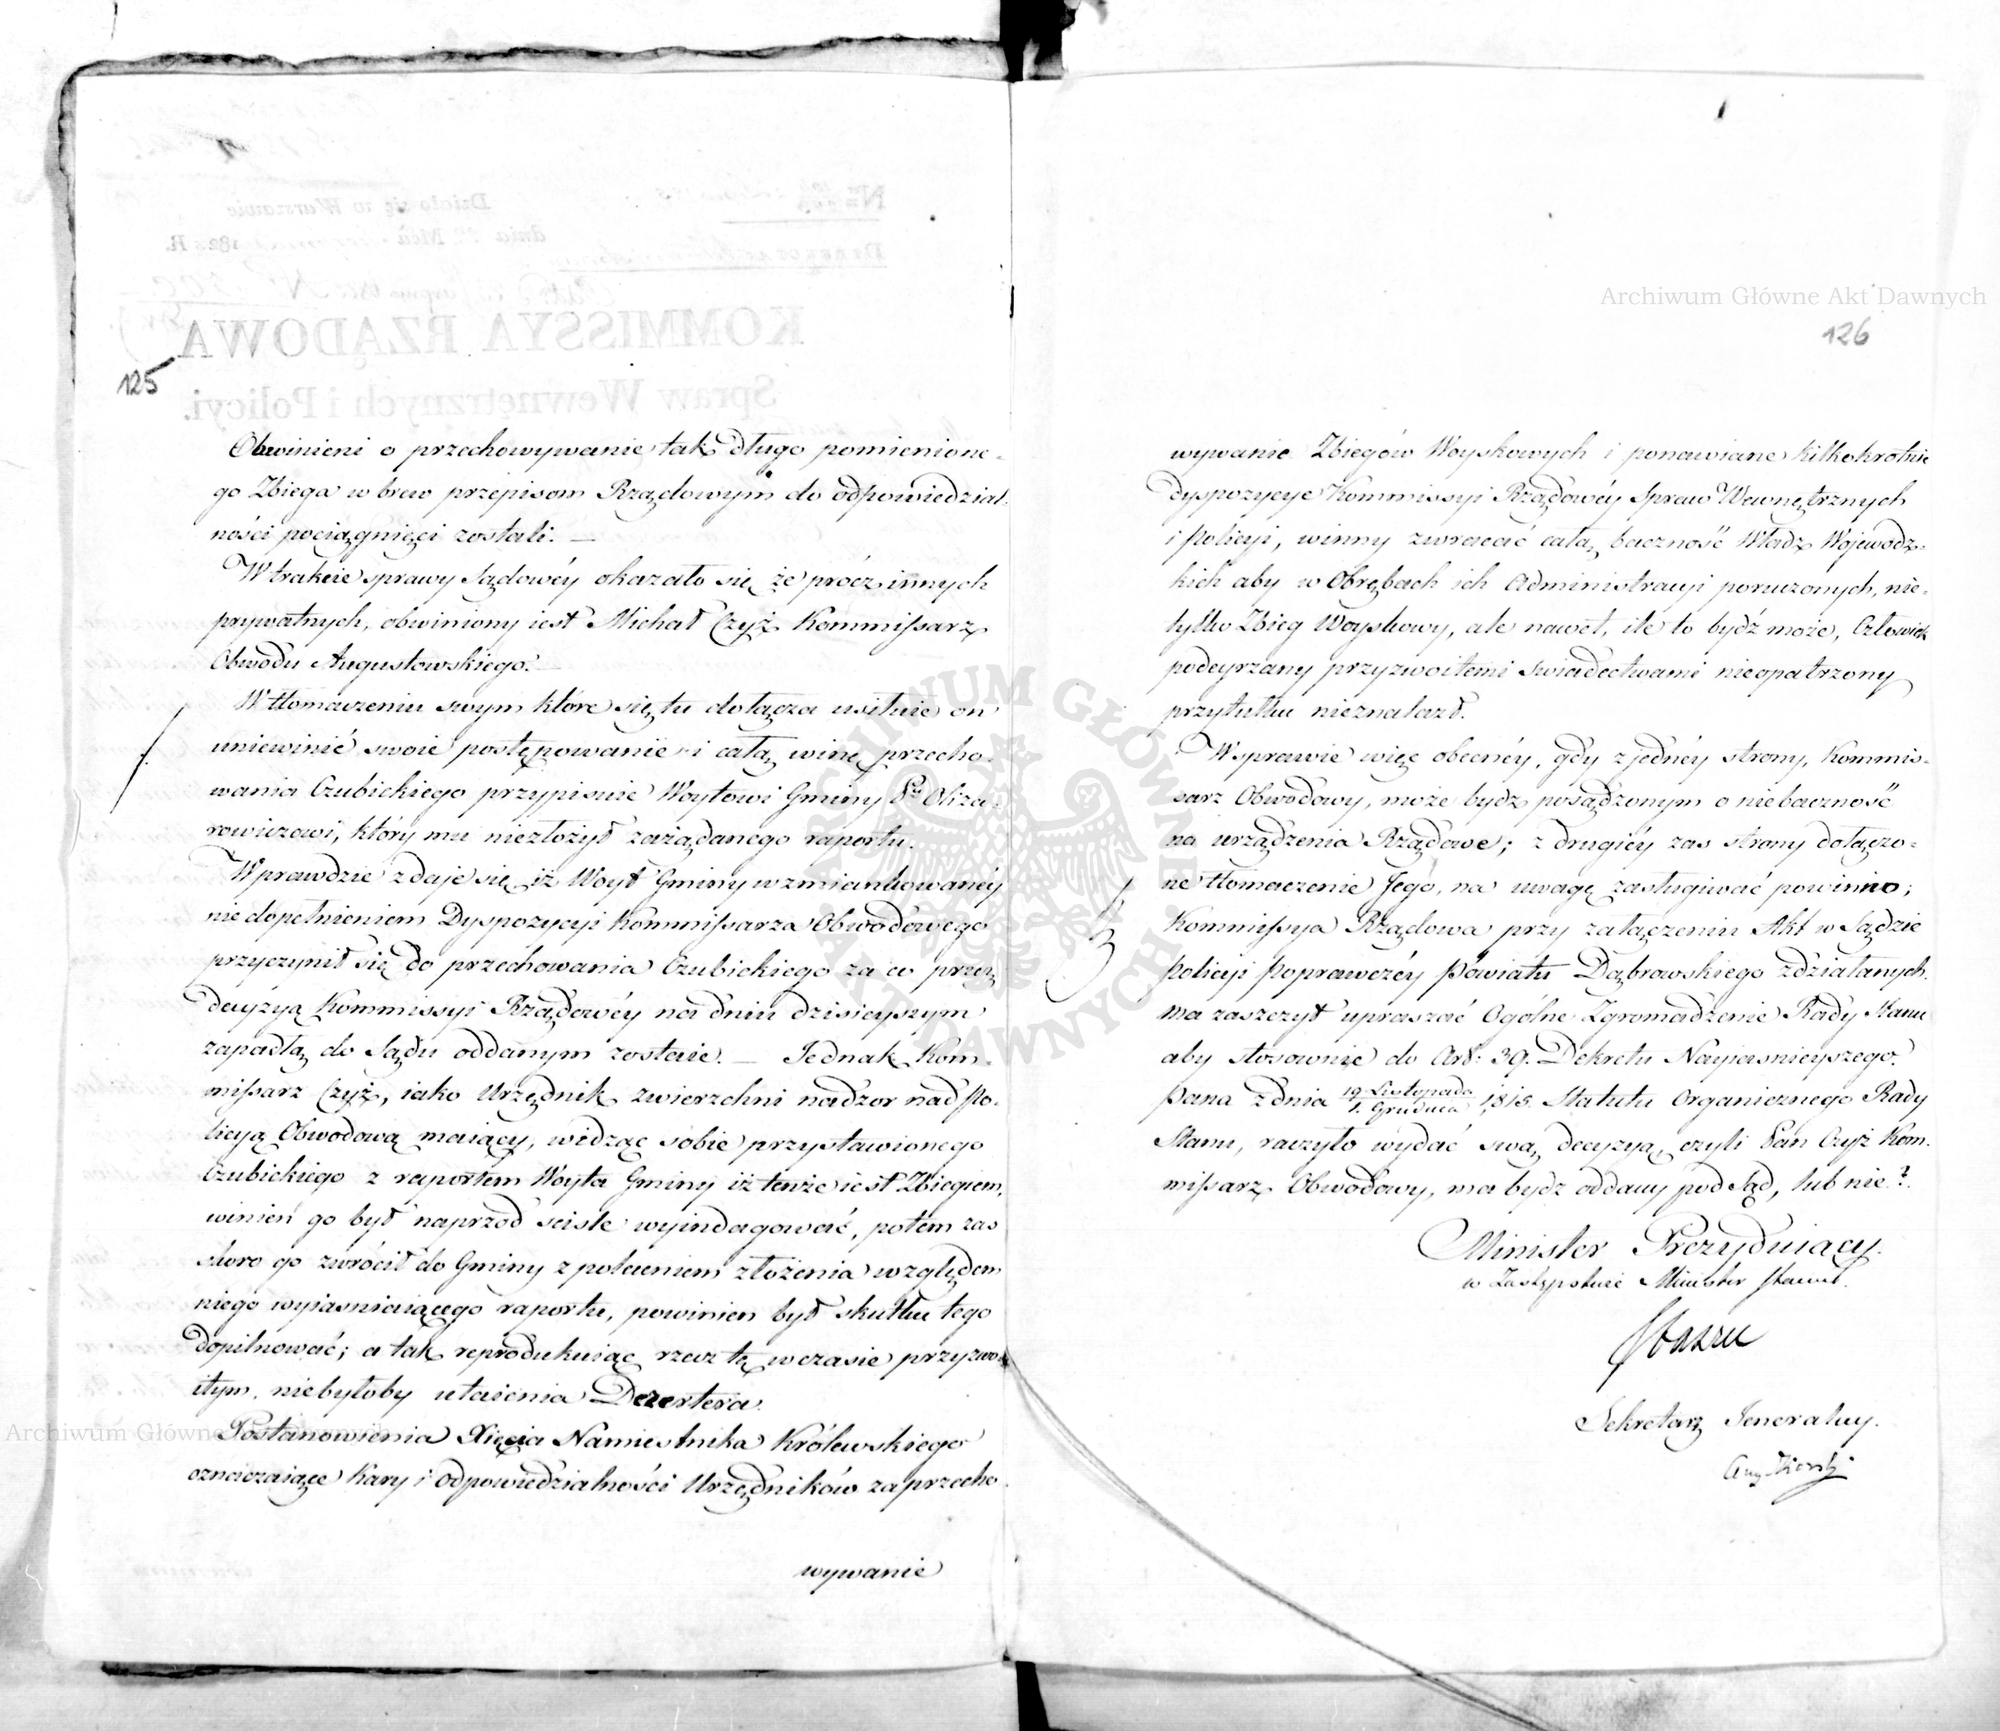 125
Obwinieni o przechowywanie tak długo pomienione-
go Zbiega wbrew przepisom Rządowym do odpowiedzial-
ności pociągnięci zostali. —
W trakcie sprawy sądowéy okazało się że prócz innych
prywatnych, obwiniony iest Michał Czyż Kommissarz
Obwodu Augustowskiego. —
W tłomaczeniu swym które się tu dołącza usiłuie on
uniewinić swoie postępowanie i całą winę przecho-
wania Czubickiego przypisuie Woytowi Gminy Pu Oliza-
rowiczowi, który mu niezłożył zażądanego raportu.
Wprawdzie zdaje się iż Woyt Gminy wzmiankowanéy
niedopełnieniem Dyspozycyi Kommissarza Obwodowego
przyczynił się do przechowania Czubickiego za co przez
decyzyą Kommissyi Rządowéy na dniu dzisieyszym
zapadłą do Sądu oddanym zostaie. — Jednak Kom-
missarz Czyż, iako Urzędnik zwierzchni nadzor nad Po-
licyą Obwodową maiący, widząc sobie przystawionego
Czubickiego z raportem Woyta Gminy iż tenże iest Zbiegiem,
winien go był naprzod scisle wyindagować, potem zas
skoro go zwrócił do Gminy z poleceniem złożenia względem
niego wyiasniaiącego raportu, powinien był skutku tego
dopilnować; a tak reprodukuiąc rzecz tę w czasie przyzwo-
itym, niebyłoby utaienia Dezertera.
Postanowienia Xięcia Namiestnika Królewskiego
oznaczaiące Kary i odpowiedzialności Urzędników za przecho-
wywanie
126
wywanie Zbiegów Woyskowych i ponawiane kilkokrotnie
dyspozycye Kommissyi Rządowéy Spraw Wewnętrznych
i Policyi, winny zwracać całą baczność Władz Wojewodz-
kich aby w Obrębach ich Administracyi poruczonych, nie-
tylko Zbieg Woyskowy, ale nawet, ile to bydź może, Człowiek
podeyrzany przyzwoitemi swiadectwami nieopatrzony
przytułku nieznalazł.
W sprawie więc obecnéy, gdy z jednéy strony, Kommis-
sarz Obwodowy, może bydz posądzonym o niebaczność
na urządzenia Rządowe; z drugiéy zas strony dołączo-
ne tłomaczenie Jego, na uwagę zasługiwać powinno;
Kommissya Rządowa przy załączeniu Akt w Sądzie
Policyi Poprawczéy Powiatu Dąbrowskiego zdziałanych.
ma zaszczyt upraszać Ogólne Zgromadzenie Rady Stanu
aby stosownie do Art: 39. Dekretu Nayiasnieyszego
Pana z dnia 19 Listopada / 1. Grudnia 1815. Statutu Organicznego Rady
Stanu, raczyło wydać swą decyzyą, czyli Pan Czyż Kom-
missarz Obwodowy, ma bydz oddany pod Sąd, lub nie?
Minister Prezyduiący.
w Zastępstwie Minister Stanu.
Sekretarz Jeneralny.
Archiwum Główne Akt Dawnych
Archiwum Główne Akt Dawnych
ARCHIWUM GŁÓWNE AKT DAWNYCH
KOMMISSYA RZĄDOWA
Spraw Wewnętrznych i Policyi.